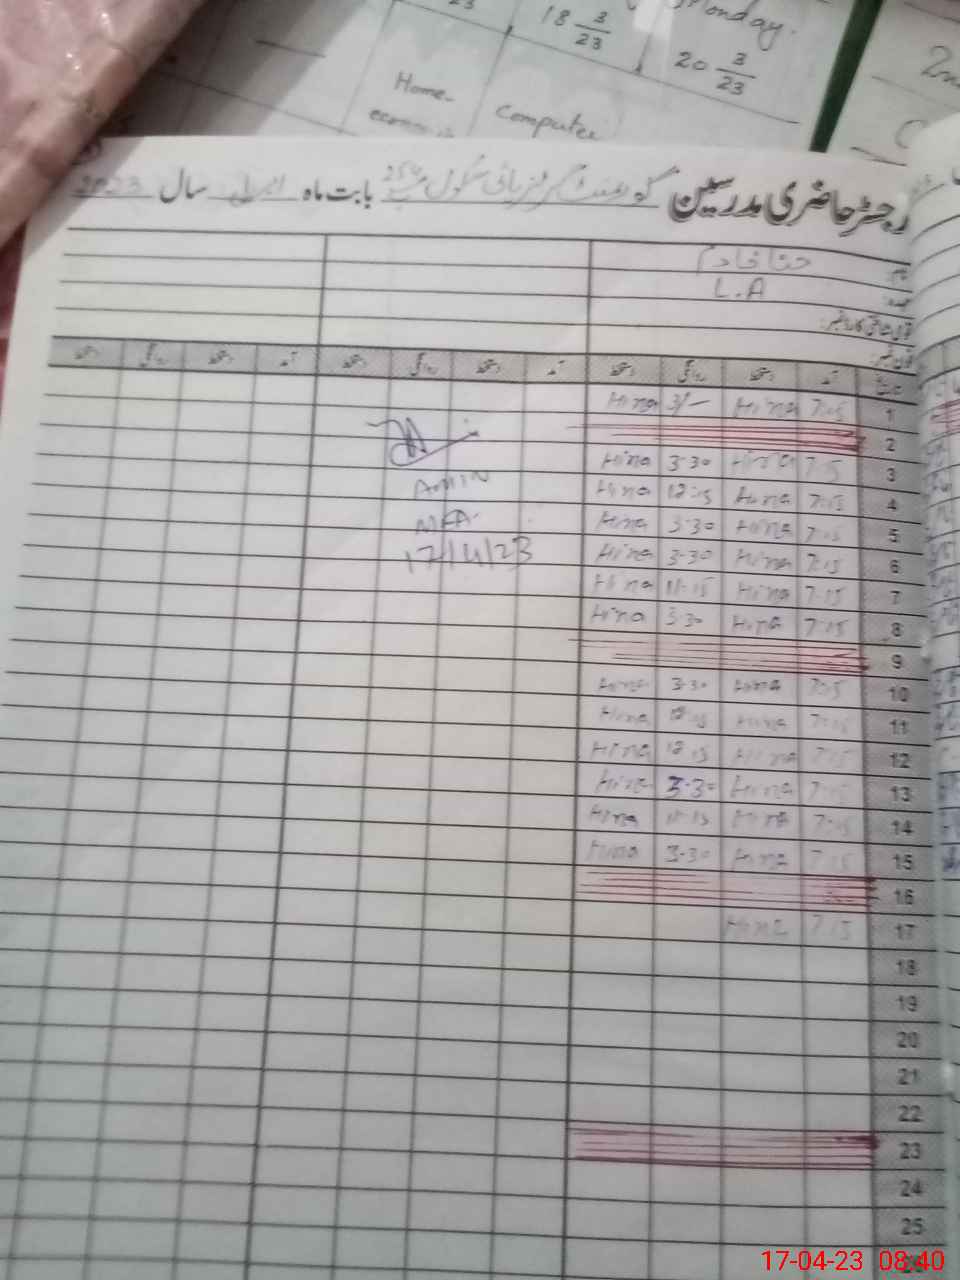 18 3/23
Monday.
20 3/23
Home-
Computer
رجسٹر حاضری مدرسین گورنمنٹ گرلز ہائی سکول بابت ماہ اپریل سال 2023
نام:
حنا خادم
عہدہ:
L.A
قومی شناختی کارڈ نمبر:
فون نمبر:
تاریخ آمد دستخط روانگی دستخط آمد دستخط روانگی دستخط آمد دستخط روانگی دستخط
1 7:15 Hina 3/- Hina
2
3 7:15 Hina 3:30 Hina
4 7:15 Hina 12:15 Hina
5 7:15 Hina 3:30 Hina
6 7:15 Hina 3:30 Hina
7 7:15 Hina 11:15 Hina
8 7:15 Hina 3:30 Hina
9
10 7:15 Hina 3:30 Hina
11 7:15 Hina 12:15 Hina
12 7:15 Hina 12:15 Hina
13 7:15 Hina 3:30 Hina
14 7:15 Hina 11:15 Hina
15 7:15 Hina 3:30 Hina
16
17 7:15 Hina
18
19
20
21
22
23
24
25
26
Amin
MEA.
17/4/23
17-04-23 08:40